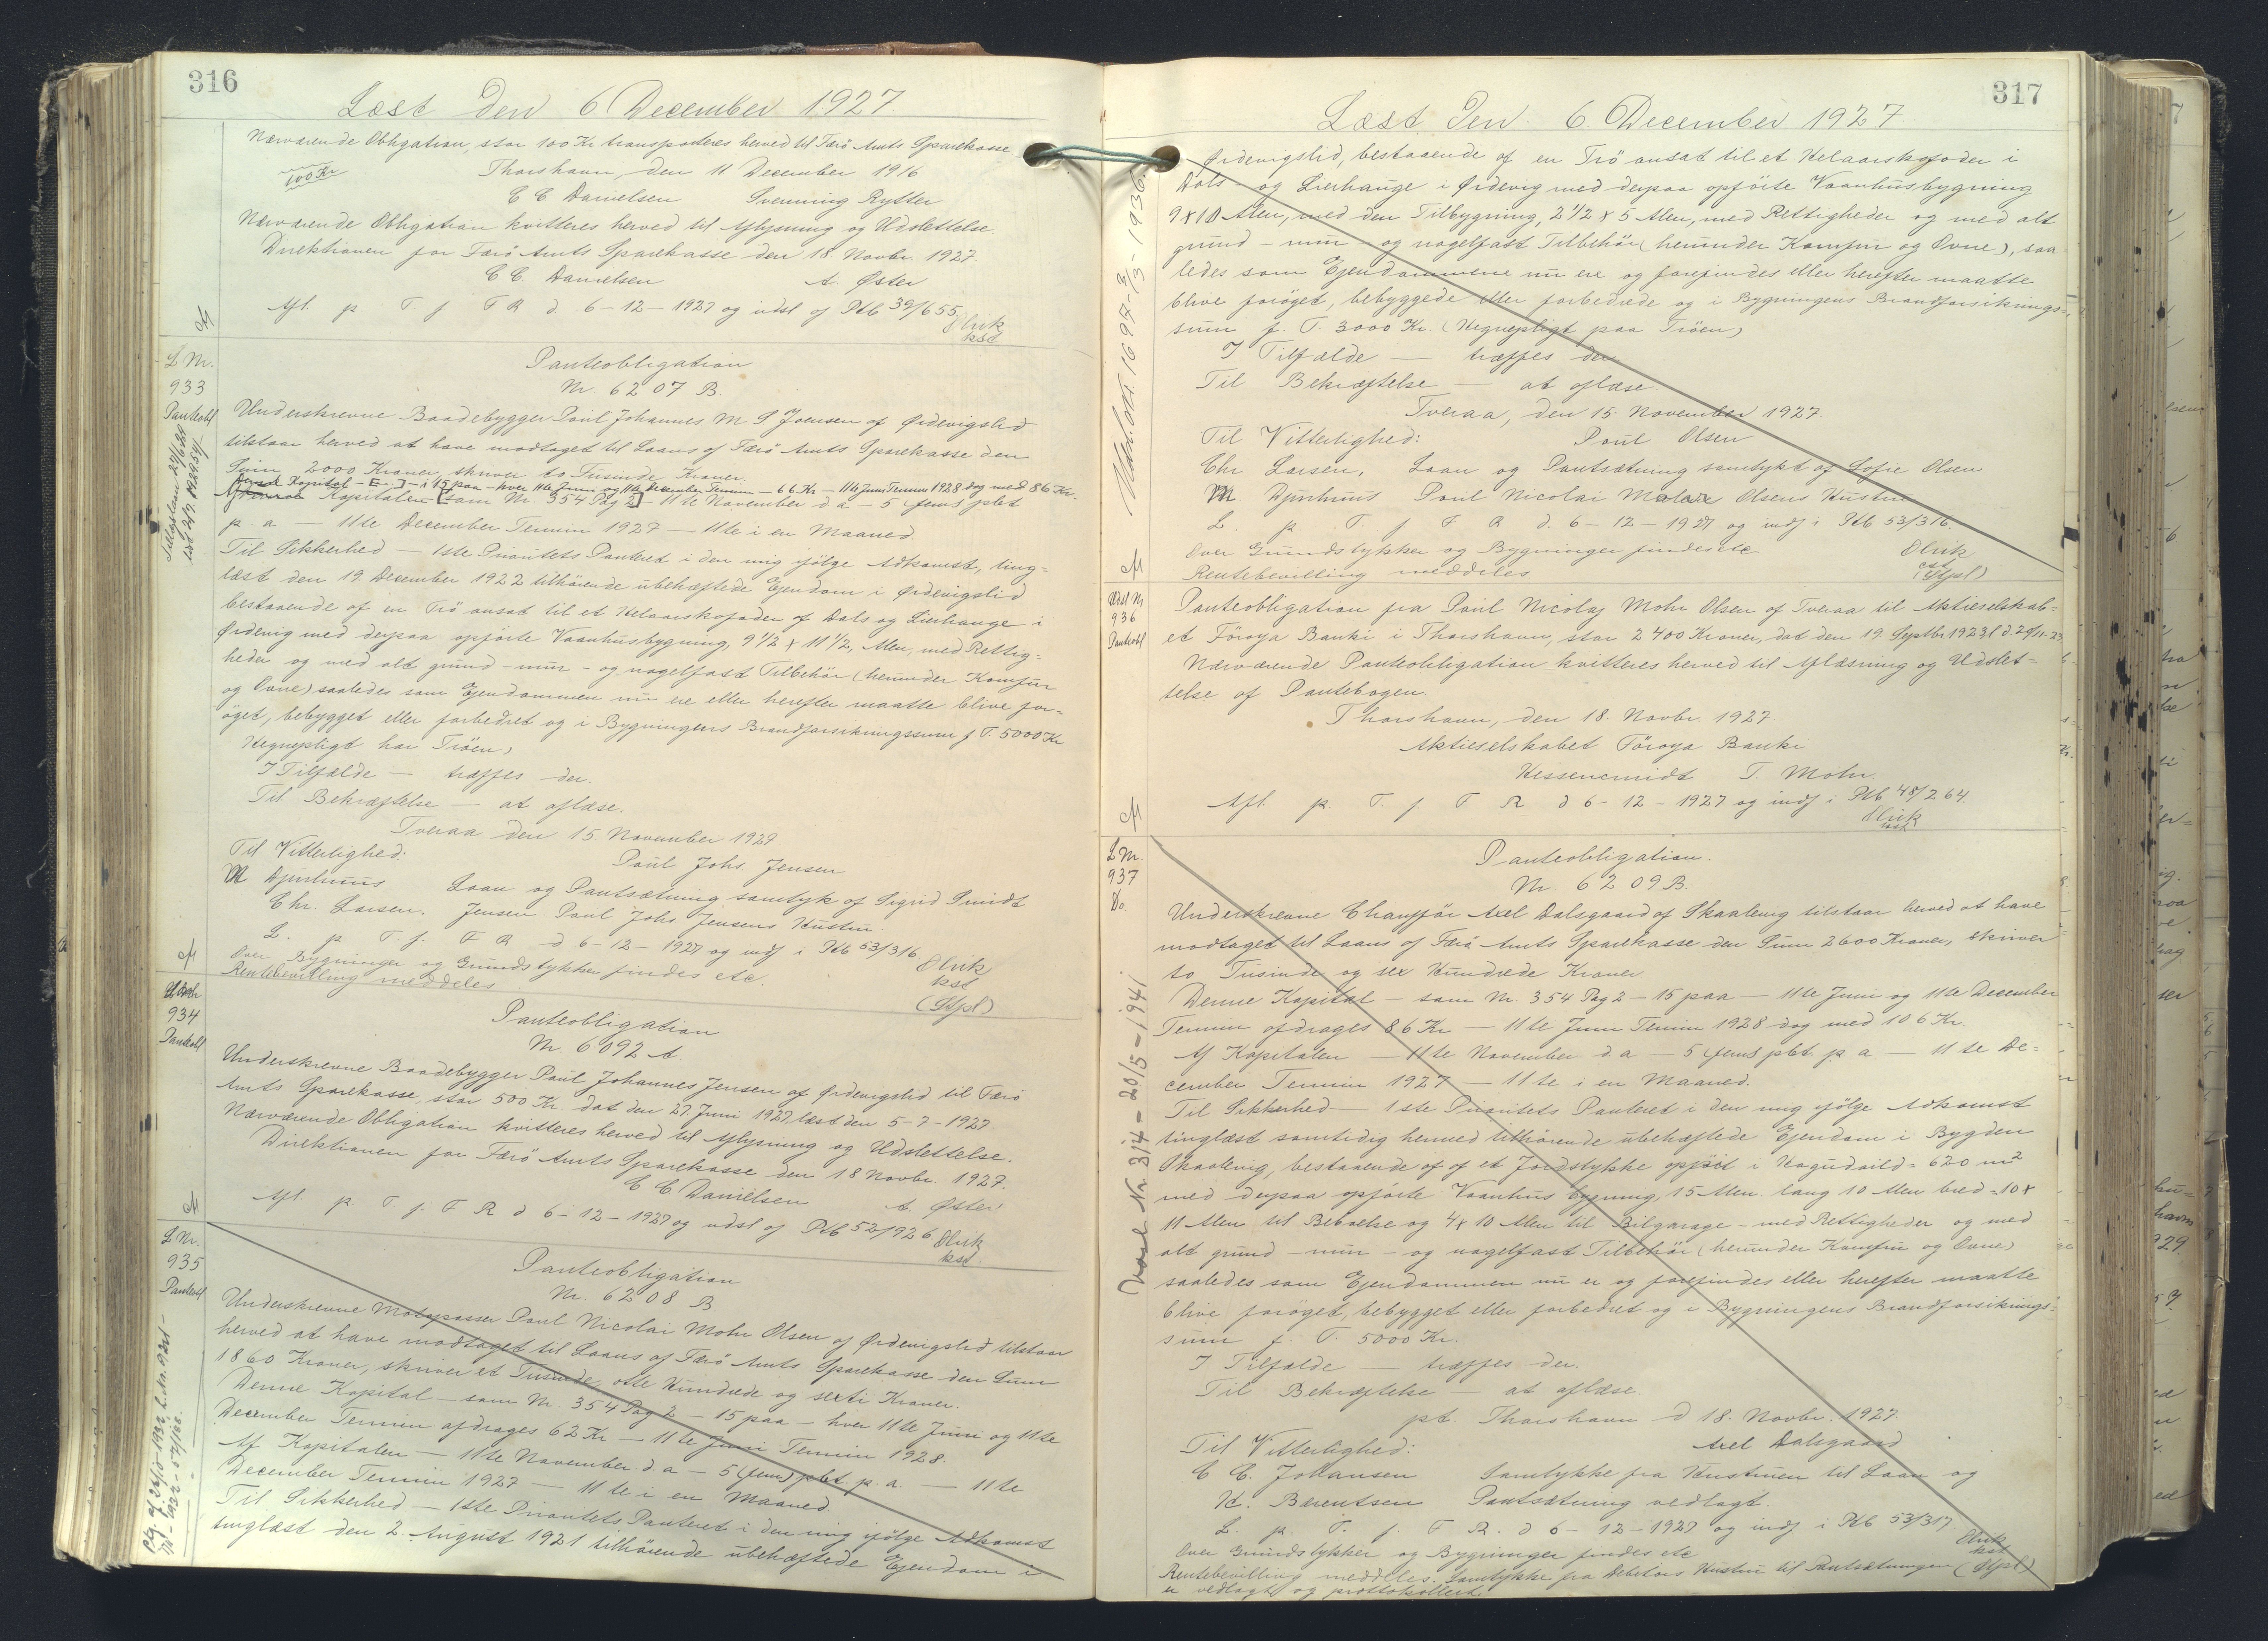 316
Læst Den 6 December 1927
Nærværende Obligation, stor 100 Kr transporteres herved til Færö Amts Sparekasse
100 Kr
Thorshavn, den 11 December 1916
C C Danielsen Svenning Rytter
Nærværende Obligation kvitteres herved til Aflysning og Udslettelse.
Direktionen for Færö Amts Sparekasse den 18. Novbr. 1927.
C C. Danielsen A. Øster
Afl. p T f F R d. 6-12-1927 og udsl af Ptb 39/655.
Olrik
kst
L Nr.
933
Panteobl
Panteobligation
Nr. 6207 B.
Underskrevne Baadebygger Poul Johannes M S Joensen af Ørdevigslid
tilstaar herved at have modtaget til Laans af Færö Amts Sparekasse den
Sum 2000 Kroner, skriver to Tusinde Kroner.
Denne Kapital - [-] - i 15 paa - hver 11te Juni og 11te December Termin - 66 Kr - 11te Juni Termin 1928 dog med 86 Kr.
Kapitalen [som Nr. 354 Pag 2] - 11te November d a - 5 (fem) pCt
p. a - 11te December Termin 1927 - 11te i en Maaned.
Til Sikkerhed - 1ste Prioritets Panteret i den mig ifölge Adkomst, ting=
læst den 19. December 1922 tilhörende ubehæftede Ejendom i Ørdevigslid
bestaaende af en Trö ansat til et Helaarskofoder af Dals og Lierhauge i
Ørdevig med derpaa opförte Vaanhusbygning, 9 1/2 x 11 1/2, Alen, med Rettig=
heder og med alt grund - mur - og nagelfast Tilbehör (herunder Komfur
og Ovne) saaledes som Ejendommen nu ere eller herefter maatte blive for=
öget, bebygget eller forbedret og i Bygningens Brandforsikringssum f T. 5000 Kr
Hegnepligt har Tröen,
I Tilfælde - træffes - der.
Til Bekræftelse - at aflæse.
Tveraa den 15. November 1927.
Til Vitterlighed: Poul Johs Jensen
M Djurhuus Laan og Pantsætning samtyk af Sigrid Smidt
Chr. Larsen. Jensen Paul Johs Jensens Hustru.
L. p T. f. F R d 6-12-1927 og indf i Ptb 53/316
Over Bygninger og Grundstykker findes etc.
Rentebevilling meddeles
Olrik
kst
(Stpl)
934
Panteobl
Panteobligation
Nr. 6092 A.
Underskrevne Baadebygger Poul Johannes Jensen af Ørdevigslid til Færö
Amts Sparekasse, stor 500 Kr. dat den 27. Juni 1927, læst den 5-7-1927
Nærværende Obligation kvitteres herved til Aflysning og Udslettelse.
Direktionen for Færö Amts Sparekasse den 18 Novbr. 1927.
C C Danielsen A. Øster
Afl. p. T. f. F R d 6-12-1927 og udsl af Ptb 52/926
Olrik
kst.
L Nr.
935
Panteobl
Panteobligation
Nr. 6208 B
Underskrevne Motorpasser Paul Nicolai Mohr Olsen af Ørdevigslid tilstaar
herved at have modtaget til Laans af Færö Amts Sparekasse den Sum
1860 Kroner, skriver et Tusinde otte Hundrede og sexti Kroner.
Denne Kapital - som Nr. 354 Pag 2 - 15 paa - hver 11te Juni og 11te
December Termin afdrages 62 Kr - 11te Juni Termin 1928.
Af Kapitalen - 11te November d. a - 5 (fem) pCt. p. a. - 11te
December Termin 1927 - 11te i en Maaned
Til Sikkerhed - 1ste Prioritets Panteret i den mig ifölge Adkomst
tinglæst den 2. August 1921 tilhörende ubehæftede Ejendom i
317
Læst Den 6. December 1927
Ørdevigslid, bestaaende af en Trö ansat til et Helaarskofoder i
Dals - og Lierhauge i Ørdevig med derpaa opförte Vaanhusbygning
9 x 10 Alen, med den Tilbygning, 2 1/2 x 5 Alen, med Rettigheder og med alt
grund - mur - og nagelfast Tilbehör (herunder Komfur og Ovne), saa
ledes som Ejendommene nu ere og forefindes eller herefter maatte
blive foröget, bebyggede eller forbedrede og i Bygningens Brandforsikrings=
sum f. T. 3000 Kr. (Hegnepligt paa Tröen)
I Tilfælde - træffes der
Til Bekræftelse - at aflæse.
Tveraa, den 15. November 1927.
Til Vitterlighed: Poul Olsen
Chr Larsen. Laan og Pantsætning samtykt af Sofie Olsen
M Djurhuus Poul Nicolai Olsens Hustru
L. p. T. f. F R d. 6-12-1927 og indf i Ptb 53/316.
Over Grundstykker og Bygninger findes etc
Rentebevilling meddeles
Olrik
cst
(Stpl)
936
Panteobl
Panteobligation fra Poul Nicolaj Mohr Olsen af Tveraa til Aktieselskab=
et Föroya Banki i Thorshavn, stor 2400 Kroner, dat den 19. Septbr 1923 l d. 20/11-23
Nærværende Panteobligation kvitteres herved til Aflæsning og Udslet=
telse af Pantebogen.
Thorshavn, den 18. Novbr. 1927.
Aktieselskabet Föroya Banki
T. Mohr
Afl. p. T. f. F R d 6-12-1927 og indf i Ptb 48/264.
Olrik
kst
L Nr.
937
Do.
Panteobligation.
Nr. 6209 B.
Underskrevne Chaufför Axel Dalsgaard af Skaalevig tilstaar herved at have
modtaget til Laans af Færö Amts Sparekasse den Sum 2600 Kroner, skriver
to Tusinde og sex Hundrede Kroner
Denne Kapital - som Nr. 354 Pag 2 - 15 paa - 11te Juni og 11te December
Termin afdrages 86 Kr - 11te Juni Termin 1928 dog med 106 Kr.
Af Kapitalen - 11te November d. a - 5 (fem) pCt. p. a - 11te De=
cember Termin 1927 - 11te i en Maaned.
Til Sikkerhed - 1ste Prioritets Panteret i den mig ifölge Adkomst
tinglæst samtidig hermed tilhörende ubehæftede Ejendom i Bygden
Skaalevig, bestaaende af af et Jordstykke - 620 m2
med derpaa opförte Vaanhus bygning, 15 Alen lang 10 Alen bred - 10 x
11 Alen til Beboelse og 4 x 10 Alen til Bilgarage - med Rettigheder og med
alt grund - mur - og nagelfast Tilbehör (herunder Komfur og Ovne)
saaledes som Ejendommen nu er og forefindes eller herefter maatte
blive foröget, bebygget eller forbedret og i Bygningens Brandforsikrings=
sum f. T. 5000 Kr.
I Tilfælde - træffes der.
Til Bekræftelse - at aflæse.
pt. Thorshavn d 18. Novbr. 1927.
Til Vitterlighed: Axel Dalsgaard
C C. Johansen Samtykke fra Hustruen til Laan og
H. Bærentsen Pantsætning vedlagt.
L. p. T. f. F R. d 6-12-1927 og indf i Ptb 53/317
Over Grundstykker og Bygninger findes etc
Olrik
kst
Rentebevilling meddeles. Samtykke fra Debitors Hustru til Pantsætningen (Stpl)
er vedlagt og prottokolleret.